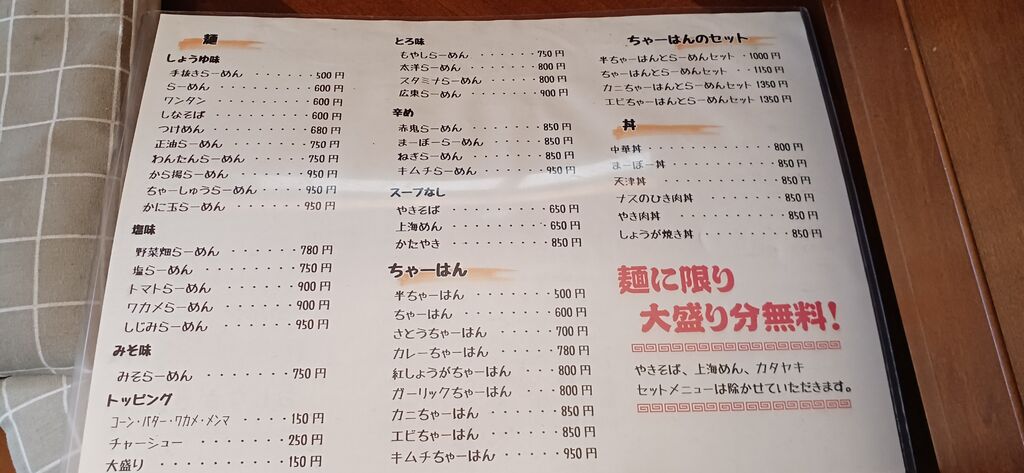 麺
しょうゆ味
手抜きらーめん ・・・・・・・500円
らーめん ・・・・・・・・・・600円
ワンタン ・・・・・・・・・・600円
しなそば ・・・・・・・・・・600円
つけめん ・・・・・・・・・・680円
正油らーめん ・・・・・・・・750円
わんたんらーめん ・・・・・・750円
から揚らーめん ・・・・・・・950円
ちゃーしゅうらーめん ・・・・950円
かに玉らーめん ・・・・・・・950円
塩味
野菜畑らーめん ・・・・・・・780円
塩らーめん ・・・・・・・・・750円
トマトらーめん ・・・・・・・900円
ワカメらーめん ・・・・・・・900円
しじみらーめん ・・・・・・・950円
みそ味
みそらーめん ・・・・・・・・750円
トッピング
コーン・バター・ワカメ・メンマ ・・・・150円
チャーシュー ・・・・・・・・250円
大盛り ・・・・・・・・・・・150円
とろ味
もやしらーめん ・・・・・・・750円
太洋らーめん ・・・・・・・・800円
スタミナらーめん ・・・・・・800円
広東らーめん ・・・・・・・・900円
辛め
赤鬼らーめん ・・・・・・・・850円
まーぼーらーめん ・・・・・・850円
ねぎらーめん ・・・・・・・・850円
キムチらーめん ・・・・・・・950円
スープなし
やきそば ・・・・・・・・・・650円
上海めん ・・・・・・・・・・650円
かたやき ・・・・・・・・・・850円
ちゃーはん
半ちゃーはん ・・・・・・・・500円
ちゃーはん ・・・・・・・・・600円
さとうちゃーはん ・・・・・・700円
カレーちゃーはん ・・・・・・780円
紅しょうがちゃーはん ・・・・800円
ガーリックちゃーはん ・・・・800円
カニちゃーはん ・・・・・・・850円
エビちゃーはん ・・・・・・・850円
キムチちゃーはん ・・・・・・950円
ちゃーはんのセット
半ちゃーはんとらーめんセット ・・1000円
ちゃーはんとらーめんセット ・・・1150円
カニちゃーはんとらーめんセット 1350円
エビちゃーはんとらーめんセット 1350円
丼
中華丼 ・・・・・・・・・・・800円
まーぼー丼 ・・・・・・・・・850円
天津丼 ・・・・・・・・・・・850円
ナスのひき肉丼 ・・・・・・・850円
やき肉丼 ・・・・・・・・・・850円
しょうが焼き丼 ・・・・・・・850円
麺に限り
大盛り分無料!
やきそば、上海めん、カタヤキ
セットメニューは除かせていただきます。